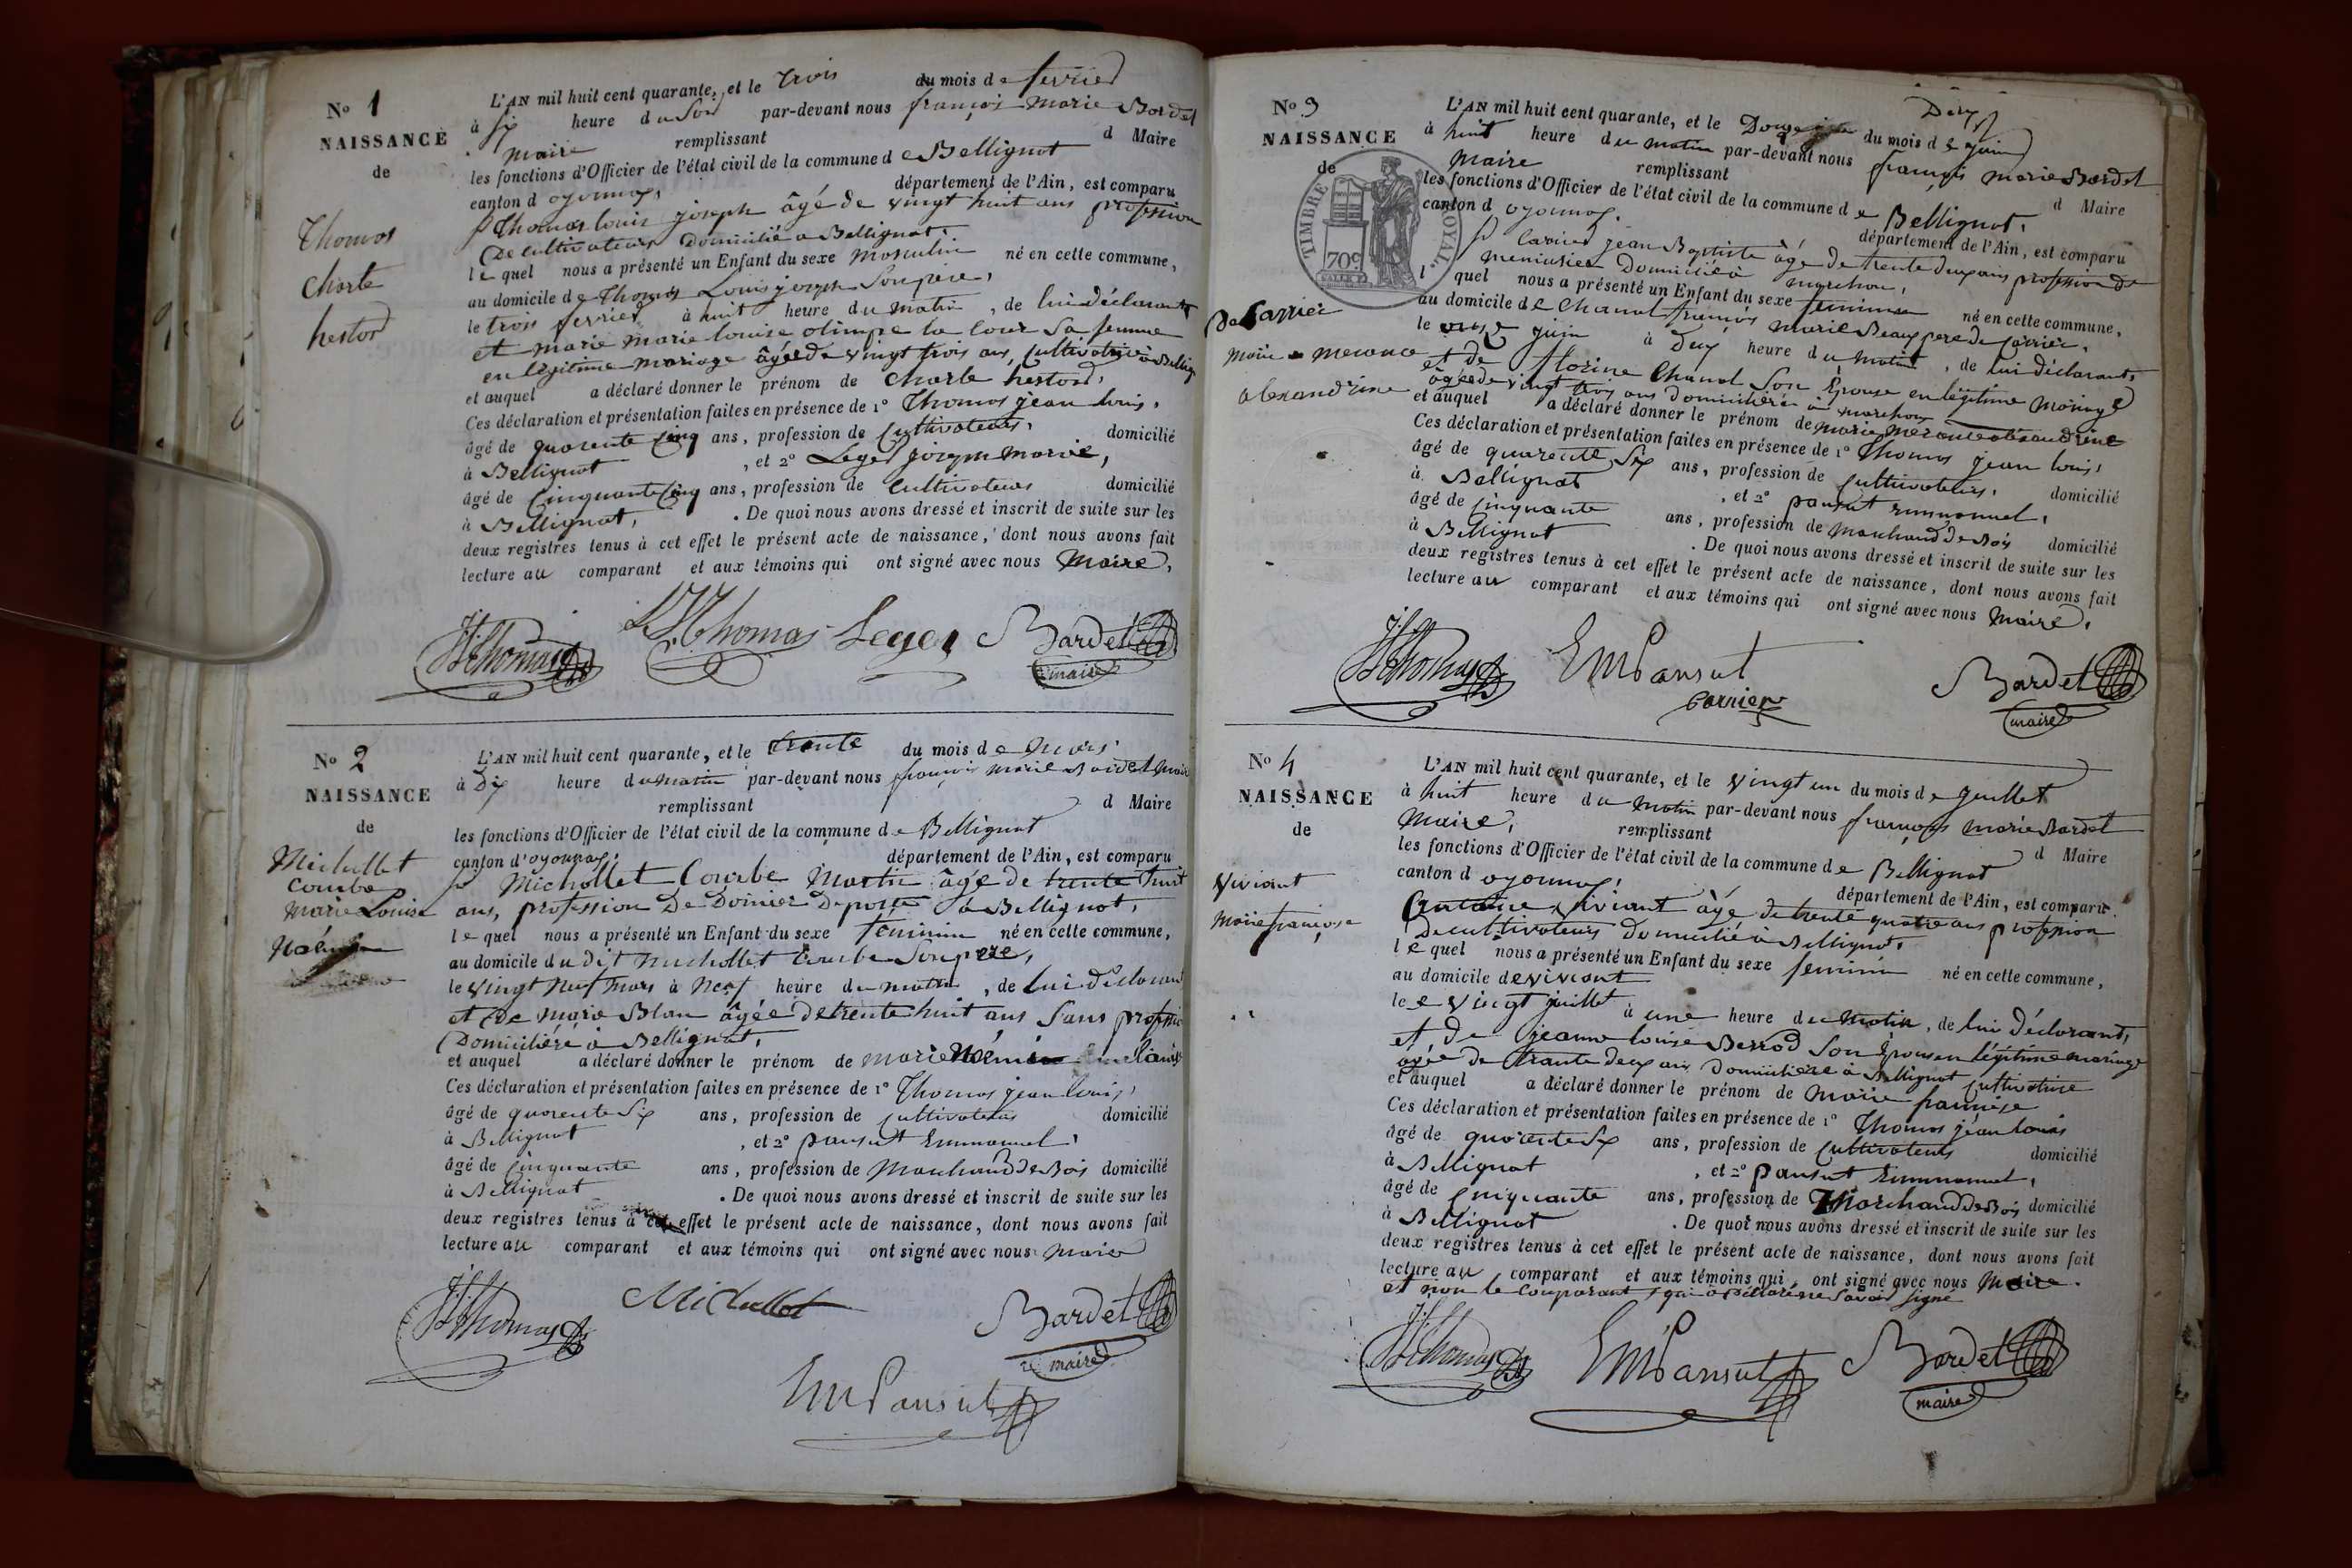 No 1
NAISSANCE
de
Thomas
Charle
hestord
L'AN mil huit cent quarante, et le trois du mois de fevrier
à six heure du soir par-devant nous françois marie Bardet
maire remplissant d Maire
les fonctions d'Officier de l'état civil de la commune de Bellignat
canton d oyonnax, département de l'Ain, est comparu
Thomas louis joseph âgé de vingt huit ans profession
De cultivateur Domicilié a Bellignat,
lequel nous a présenté un Enfant du sexe masculin né en cette commune,
au domicile de Thomas Louis joseph Son père,
le trois fevrier à huit heure du matin, de lui déclarant
et marie marie louise olimpe la cour sa femme
en légitime mariage âgée de vingt trois ans, Cultivatrice à Bellig
et auquel a déclaré donner le prénom de charle hestord,
Ces déclaration et présentation faites en présence de 1° Thomas jean louis,
âgé de quarente cinq ans, profession de cultivateur, domicilié
à Bellignat, et 2° Leger joseph marie,
âgé de Cinquante Cinq ans, profession de Cultivateur domicilié
à Bellignat, . De quoi nous avons dressé et inscrit de suite sur les
deux registres tenus à cet effet le présent acte de naissance, dont nous avons fait
lecture au comparant et aux témoins qui ont signé avec nous Maire,
JL Thomas LJ Thomas Leger Bardet
maire
No 2
NAISSANCE
de
Michollet
Courbe
Marie Louise
Noémie
L'AN mil huit cent quarante, et le trente du mois de Mars
à Dix heure du matin par-devant nous françois marie Bardet Maire
remplissant d Maire
les fonctions d'Officier de l'état civil de la commune de Bellignat
canton d'oyonnax, département de l'Ain, est comparu
Michollet Courbe Martin âgé de trente huit
ans, profession De Doinier De poste à Bellignat,
lequel nous a présenté un Enfant du sexe féminin né en cette commune,
au domicile du dit michollet Courbe Son père,
le vingt Neuf Mars à Neuf heure du matin, de lui déclarant
et de marie Blan âgée de trente huit ans Sans professio
Domiciliée à Bellignat,
et auquel a déclaré donner le prénom de marie Noémie
Ces déclaration et présentation faites en présence de 1° Thomas jean louis,
âgé de quarente Six ans, profession de Cultivateur domicilié
à Bellignat, et 2° pansut Emmanuel,
âgé de Cinquante ans, profession de Marchand De Bois domicilié
à Bellignat . De quoi nous avons dressé et inscrit de suite sur les
deux registres tenus à cet effet le présent acte de naissance, dont nous avons fait
lecture au comparant et aux témoins qui ont signé avec nous maire
JL Thomas Michollet Bardet
maire
Em Pansut
No 3
NAISSANCE
de
TIMBRE ROYAL.
70c
Carrier
Marie merance
alexandrine
L'AN mil huit cent quarante, et le Douze du mois de juin
à huit heure du matin par-devant nous françois marie Bardet
Maire remplissant d Maire
les fonctions d'Officier de l'état civil de la commune de Bellignat,
canton d oyonnax, département de l'Ain, est comparu
Carrier jean Baptiste âgé de trente deux ans profession de
menuisier Domicilié à marchon,
l quel nous a présenté un Enfant du sexe feminin né en cette commune,
au domicile de Chanal françois marie Beaux pere de Carrier,
le onze juin à Deux heure du matin, de lui déclarant,
et de florine Chanal Son Epouse en légitime mariage
âgée de vingt trois ans domiciliée à marchon
et auquel a déclaré donner le prénom de marie mérance alexandrine
Ces déclaration et présentation faites en présence de 1° Thomas jean louis,
âgé de quarente Six ans, profession de Cultivateur, domicilié
à Bellignat, et 2° pansut Emmanuel,
âgé de Cinquante ans, profession de Marchand De Bois domicilié
à Bellignat . De quoi nous avons dressé et inscrit de suite sur les
deux registres tenus à cet effet le présent acte de naissance, dont nous avons fait
lecture au comparant et aux témoins qui ont signé avec nous Maire,
JL Thomas Em Pansut Bardet
Carrier maire
No 4
NAISSANCE
de
Viviant
Marie françoise
L'AN mil huit cent quarante, et le Vingt un du mois de Juillet
à huit heure du matin par-devant nous françois marie Bardet
Maire, remplissant d Maire
les fonctions d'Officier de l'état civil de la commune de Bellignat
canton d oyonnax, département de l'Ain, est comparu
Antoine Viviant âgé de trente quatre ans profession
De cultivateur Domicilié à Bellignat,
lequel nous a présenté un Enfant du sexe feminin né en cette commune,
au domicile de viviant
le vingt juillet à une heure du matin, de lui déclarant,
et de jeanne louise Berrod Son Epouse en légitime mariage
agée de trante deux ans Domiciliée à Bellignat Cultivatrice
et auquel a déclaré donner le prénom de Marie françoise
Ces déclaration et présentation faites en présence de 1° Thomas jean louis
âgé de quarente Six ans, profession de Cultivateur domicilié
à Bellignat, et 2° pansut Emmanuel,
âgé de Cinquante ans, profession de Marchand De Bois domicilié
à Bellignat . De quoi nous avons dressé et inscrit de suite sur les
deux registres tenus à cet effet le présent acte de naissance, dont nous avons fait
lecture au comparant et aux témoins qui ont signé avec nous Maire.
et non le Comparant qui a déclaré ne savoir signé
JL Thomas Em Pansut Bardet
maire